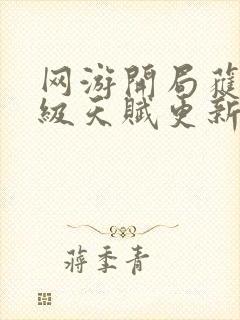 网游開局獲
級天賦更新
蔣季青